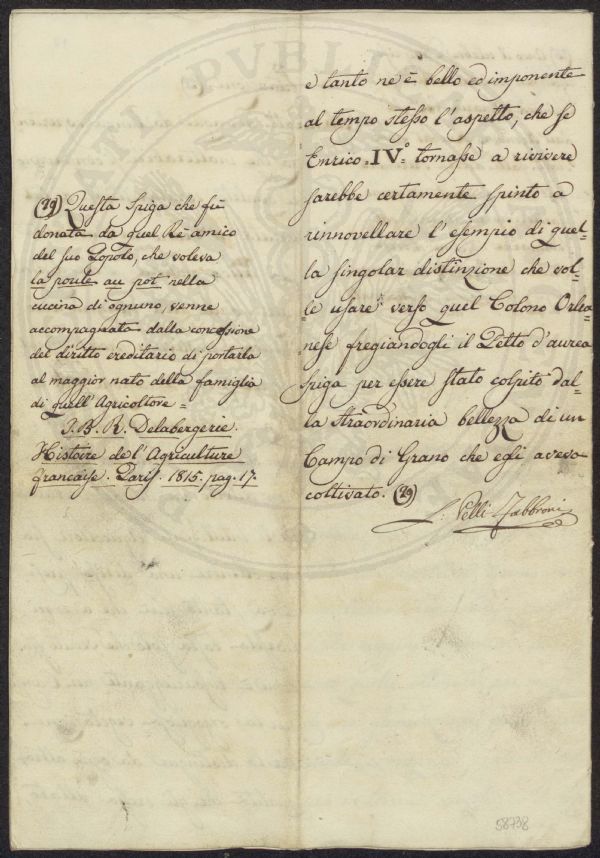 e tanto ne è bello ed imponente
al tempo stesso l'aspetto, che se
Enrico = IV.° tornasse a rivivere
sarebbe certamente spinto a
rinnovellare l'esempio di quel-
la singolar distinzione che vol-
le usare verso quel Colono Orlea-
nese fregiandogli il Petto d'aurea
spiga per essere stato colpito dal-
la straordinaria bellezza di un
Campo di Grano che egli aveva
coltivato. (29)
L: Pelli-Fabbroni
(29) Questa spiga che fù
donata da quel Rè amico
del suo Popolo, che voleva
la poule au pot nella
cucina di ognuno, venne
accompagnata dalla concessione
del diritto ereditario di portarla
al maggior nato della famiglia
di quell'Agricoltore =
J. B. R. Delabergerie.
Histoire de l'Agriculture
française. Paris. 1815. pag. 17.
58738